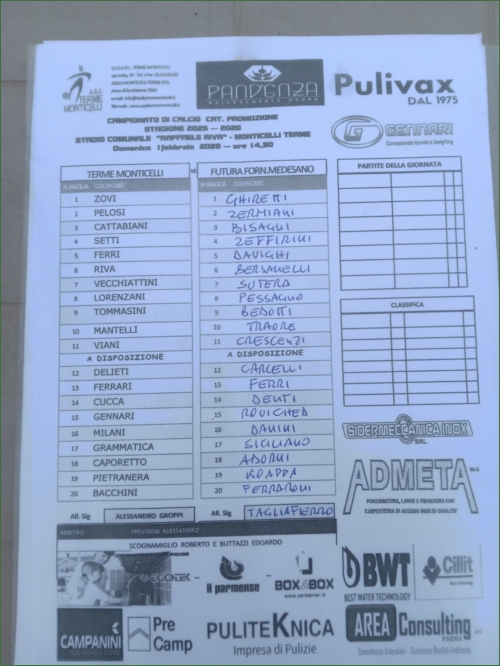 A.S.D.
TERME MONTICELLI
PANDENZA
NATURALMENTE BUONO
Pulivax
DAL 1975
CAMPIONATO DI CALCIO CAT. PROMOZIONE
STAGIONE 2025 - 2026
STADIO COMUNALE "RAFFAELE RIVA" - MONTICELLI TERME
Domenica 1 febbraio 2026 — ore 14,30
GENNARI
TERME MONTICELLI VS FUTURA FORN.MEDESANO
N.MAGLIA COGNOME N.MAGLIA COGNOME
1 ZOVI 1 GHIRETTI
2 PELOSI 2 ZERMIANI
3 CATTABIANI 3 BISAGNI
4 SETTI 4 ZEFFIRINI
5 FERRI 5 DAVIGHI
6 RIVA 6 BERSANELLI
7 VECCHIATTINI 7 SUTERA
8 LORENZANI 8 PESSAGNO
9 TOMMASINI 9 BEDOTTI
10 MANTELLI 10 TRAORE
11 VIANI 11 CRESCENZI
A DISPOSIZIONE A DISPOSIZIONE
12 DELIETI 12 CARCELLI
13 FERRARI 13 FERRI
14 CUCCA 14 DENTI
15 GENNARI 15 ROUICHED
16 MILANI 16 DAMINI
17 GRAMMATICA 17 SICILIANO
18 CAPORETTO 18 ADORNI
19 PIETRANERA 19
20 BACCHINI 20 FERRARONI
All. Sig ALESSANDRO GROPPI All. Sig TAGLIAFIERRO
ARBITRO TREVISANI ALESSANDRO
SCOGNAMIGLIO ROBERTO E BUTTAZZI EDOARDO
PARTITE DELLA GIORNATA
CLASSIFICA
SIDERMECCANICA INOX
SRL
ADMETA
il parmense
BOX&BOX
BWT
BEST WATER TECHNOLOGY
Cillit
CAMPANINI
Pre Camp
PULITEKNICA
Impresa di Pulizie
AREA Consulting
PARMA